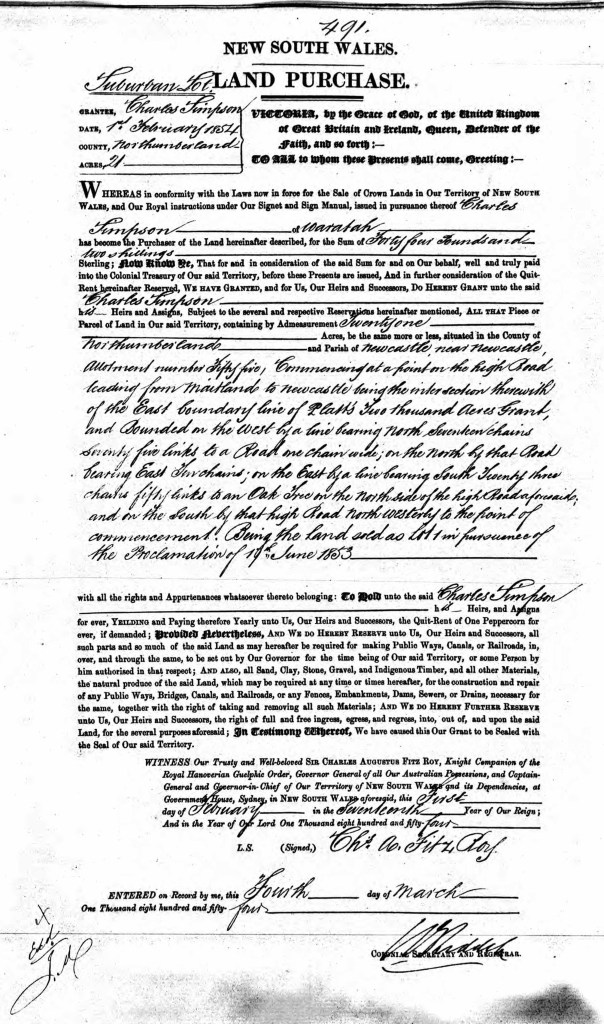 491.
NEW SOUTH WALES.
Suburban Lot. LAND PURCHASE.
GRANTEE, Charles Simpson
DATE, 1st February 1854
COUNTY, Northumberland
ACRES, 21
VICTORIA, by the Grace of God, of the United Kingdom
of Great Britain and Ireland, Queen, Defender of the
Faith, and so forth:—
TO ALL to whom these Presents shall come, Greeting:—
WHEREAS in conformity with the Laws now in force for the Sale of Crown Lands in Our Territory of NEW SOUTH
WALES, and Our Royal instructions under Our Signet and Sign Manual, issued in pursuance thereof Charles
Simpson of Waratah
has become the Purchaser of the Land hereinafter described, for the Sum of Forty four Pounds and
two shillings
Sterling; Now Know Ye, That for and in consideration of the said Sum for and on Our behalf, well and truly paid
into the Colonial Treasury of Our said Territory, before these Presents are issued, And in further consideration of the Quit-
Rent hereinafter Reserved, WE HAVE GRANTED, and for Us, Our Heirs and Successors, DO HEREBY GRANT unto the said
Charles Simpson
his Heirs and Assigns, Subject to the several and respective Reservations hereinafter mentioned, ALL THAT Piece or
Parcel of Land in Our said Territory, containing by Admeasurement Twenty one
Acres, be the same more or less, situated in the County of
Northumberland and Parish of Newcastle, near Newcastle,
Allotment number Fifty five, Commencing at a point on the high Road
leading from Maitland to Newcastle being the intersection therewith
of the East boundary line of Platts Two thousand Acres Grant,
and Bounded on the West by a line bearing North, Seventeen chains
seventy five links to a Road one chain wide; on the North by that Road
bearing East Ten chains; on the East by a line bearing South Twenty three
chains fifty links to an Oak Tree on the North side of the high Road aforesaid;
and on the South by that high Road North Westerly to the point of
commencement. Being the Land sold as Lot 1 in pursuance of
the Proclamation of June 1853
with all the rights and Appurtenances whatsoever thereto belonging: To Hold unto the said Charles Simpson
his Heirs, and Assigns
for ever, YEILDING and Paying therefore Yearly unto Us, Our Heirs and Successors, the Quit-Rent of One Peppercorn for
ever, if demanded; Provided Nevertheless, AND WE DO HEREBY RESERVE unto Us, Our Heirs and Successors, all
such parts and so much of the said Land as may hereafter be required for making Public Ways, Canals, or Railroads, in,
over, and through the same, to be set out by Our Governor for the time being of Our said Territory, or some Person by
him authorised in that respect; AND ALSO, all Sand, Clay, Stone, Gravel, and Indigenous Timber, and all other Materials,
the natural produce of the said Land, which may be required at any time or times hereafter, for the construction and repair
of any Public Ways, Bridges, Canals, and Railroads, or any Fences, Embankments, Dams, Sewers, or Drains, necessary for
the same, together with the right of taking and removing all such Materials; AND WE DO HEREBY FURTHER RESERVE
unto Us, Our Heirs and Successors, the right of full and free ingress, egress, and regress, into, out of, and upon the said
Land, for the several purposes aforesaid; In Testimony Whereof, We have caused this Our Grant to be Sealed with
the Seal of Our said Territory.
WITNESS Our Trusty and Well-beloved SIR CHARLES AUGUSTUS FITZ ROY, Knight Companion of the
Royal Hanoverian Guelphic Order, Governor General of all Our Australian Possessions, and Captain-
General and Governor-in-Chief of Our Terrritory of NEW SOUTH WALES and its Dependencies, at
Government House, Sydney, in NEW SOUTH WALES aforesaid, this First
day of February in the Seventeenth Year of Our Reign;
And in the Year of Our Lord One Thousand eight hundred and fifty-four
L.S. (Signed,) Chs. A. Fitz Roy.
ENTERED on Record by me, this Fourth day of March
One Thousand eight hundred and fifty-four
COLONIAL SECRETARY AND REGISTRAR.